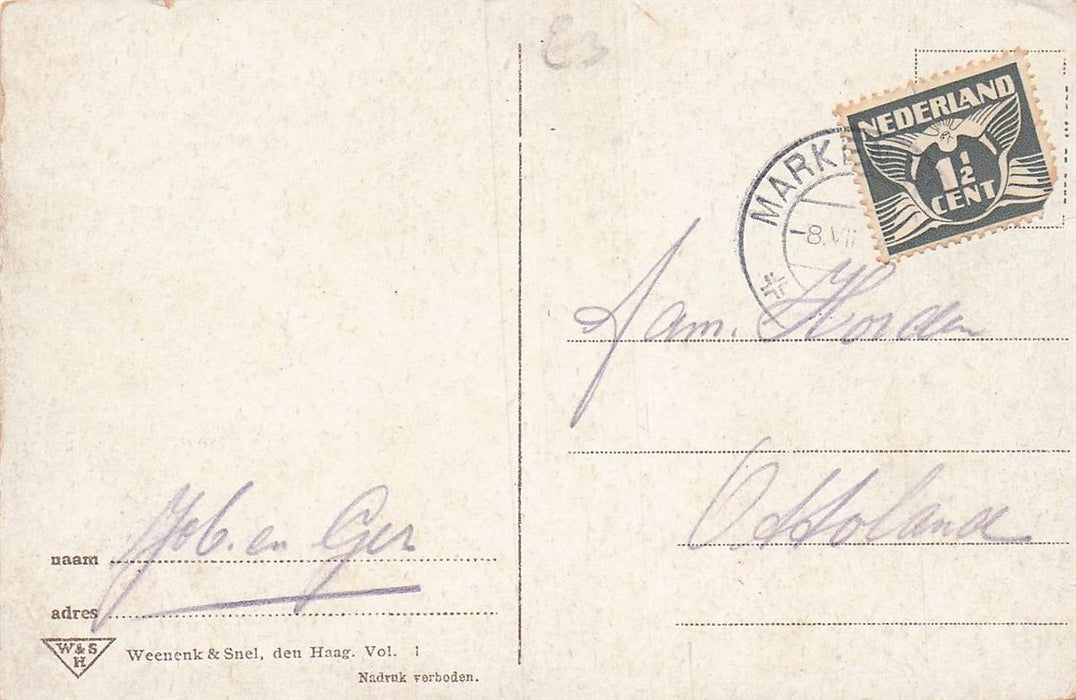 E3
NEDERLAND
1½
CENT
MARKE
-8.VII
Fam. Horden
Ottoland
naam Job. en Ger
adres
W&S
H
Weenenk & Snel, den Haag. Vol. 1
Nadruk verboden.